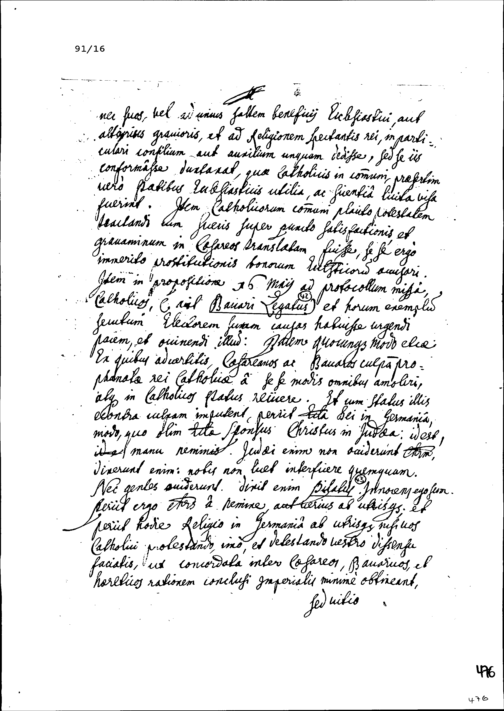 91/16
nec suos, vel ad unius saltem beneficij Ecclesiastici, aut
alterius gravioris, et ad Religionem spectantis rei, in parti-
culari consilium aut auxilium unquam, sed se iis
conformasse duntaxat, quae Catholicis in comuni, praesertim
vero Statibus Ecclesiasticis utilia, ac licita visa
fuerint. Item Catholicorum comuni placito potestatem
tractandi cum Suecis super puncto satisfactionis et
gravaminum in Caesareos translatam fuisse, se se ergo
immerito prostitutionis bonorum accusari.
Item in propositione 26 Maij ad protocollum missa,
Catholicos, Bavari Legatus et horum exemplum
Electorem suum causas habuisse urgendi
pacem, et obtinendi illud: quocunque modo
Ex quibus advertitis, Caesareanos ac Bavaros culpam pro-
phanatae rei Catholicae à se se modis omnibus amoliri,
atque in Catholicos status reiicere. Et cum status illis
econtra culpam imputent, periit Dei in Germania,
modo, quo olim Sponsus Christus in Judaea: id est,
manu neminis. Judaei enim non occiderunt
dixerunt enim: nobis non licet interficere quemquam.
Nec gentes occiderunt. dixit enim Pilatus, Innocens ego sum.
Periit ergo à nemine, ab utrisque. et
periit hodie Religio in Germania ab utrisque
Catholicis protestando, imo, et detestando vestro dissensu
facialis, ut concordata inter Caesareos, Bavaros, et
haereticos rationem conclusi Imperialis minimè obtineant,
sed vitio
476
476